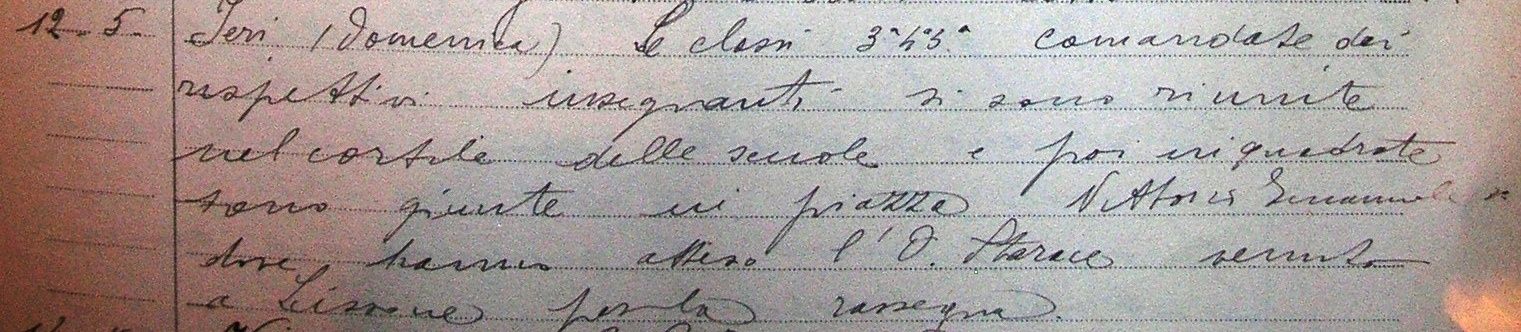 12-5- Ieri (domenica) le classi 3ª 4ª 5ª comandate dai
rispettivi insegnanti si sono riunite
nel cortile delle scuole e poi inquadrate
sono giunte in piazza Vittorio Emanuele
dove hanno atteso l' O. Starace venuto
a Lissone per la rassegna.